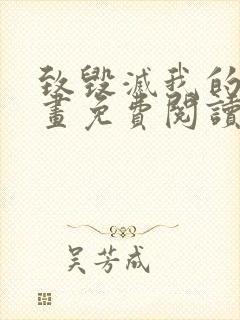 致毀滅我的
畫免費閱讀
吴芳成